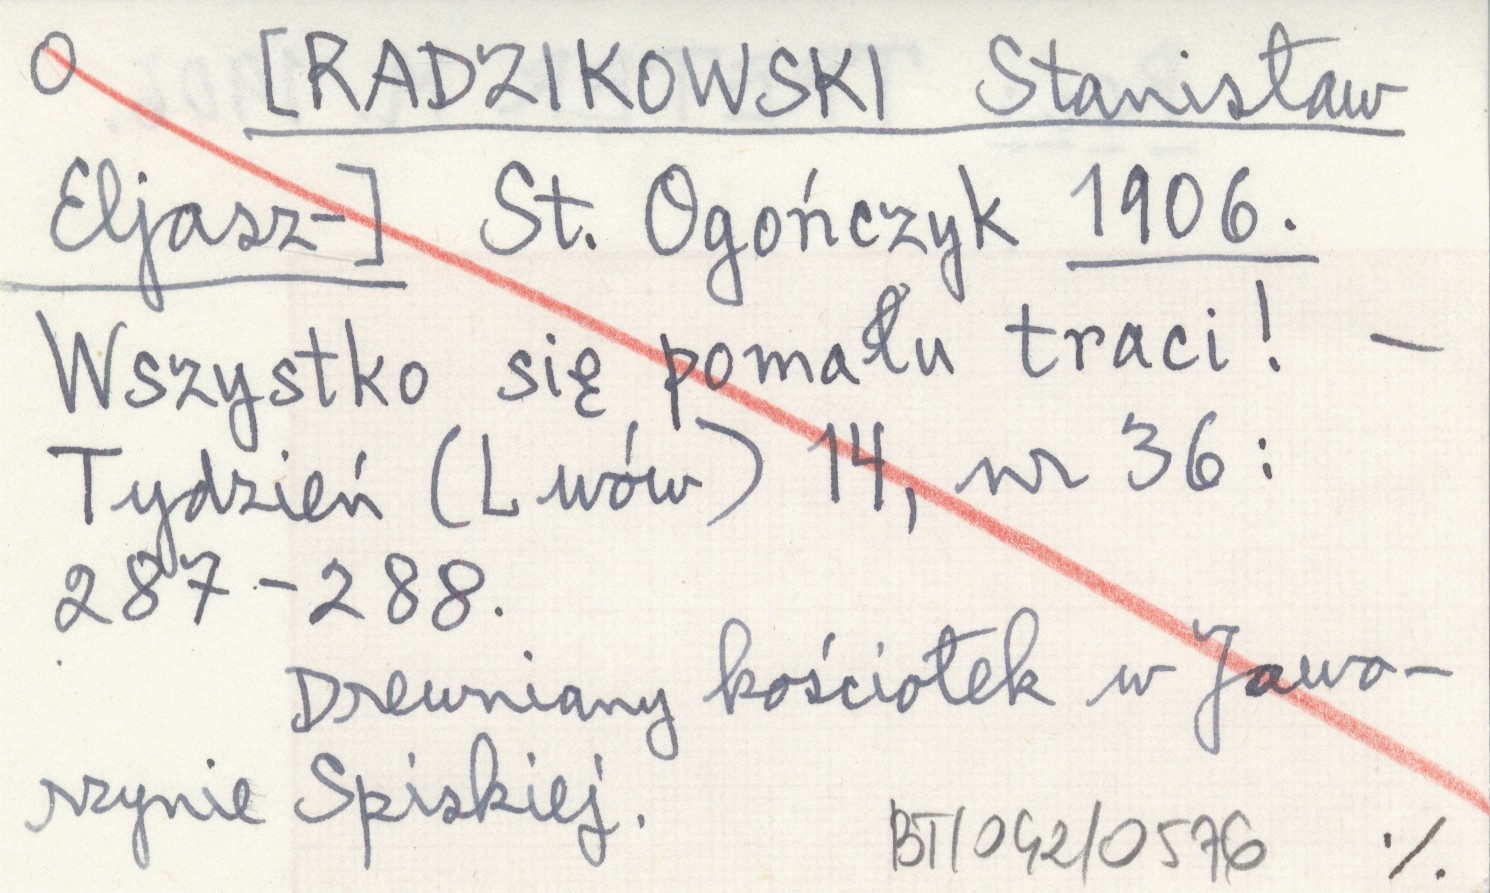 O [RADZIKOWSKI Stanisław
Eljasz-] St. Ogończyk 1906.
Wszystko się pomału traci! –
Tydzień (Lwów) 14, nr 36:
287-288.
Drewniany kościołek w Jawo-
rzynie Spiskiej.
BT/042/0576 ./.